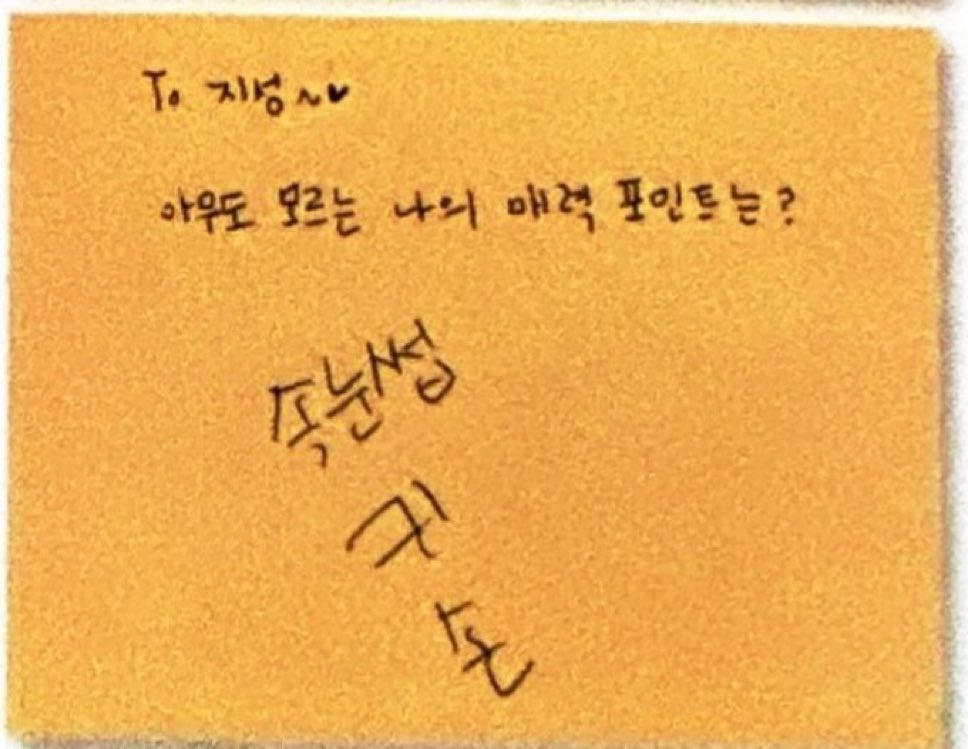 To 지성~♥
아무도 모르는 나의 매력 포인트는?
속눈썹
귀
손